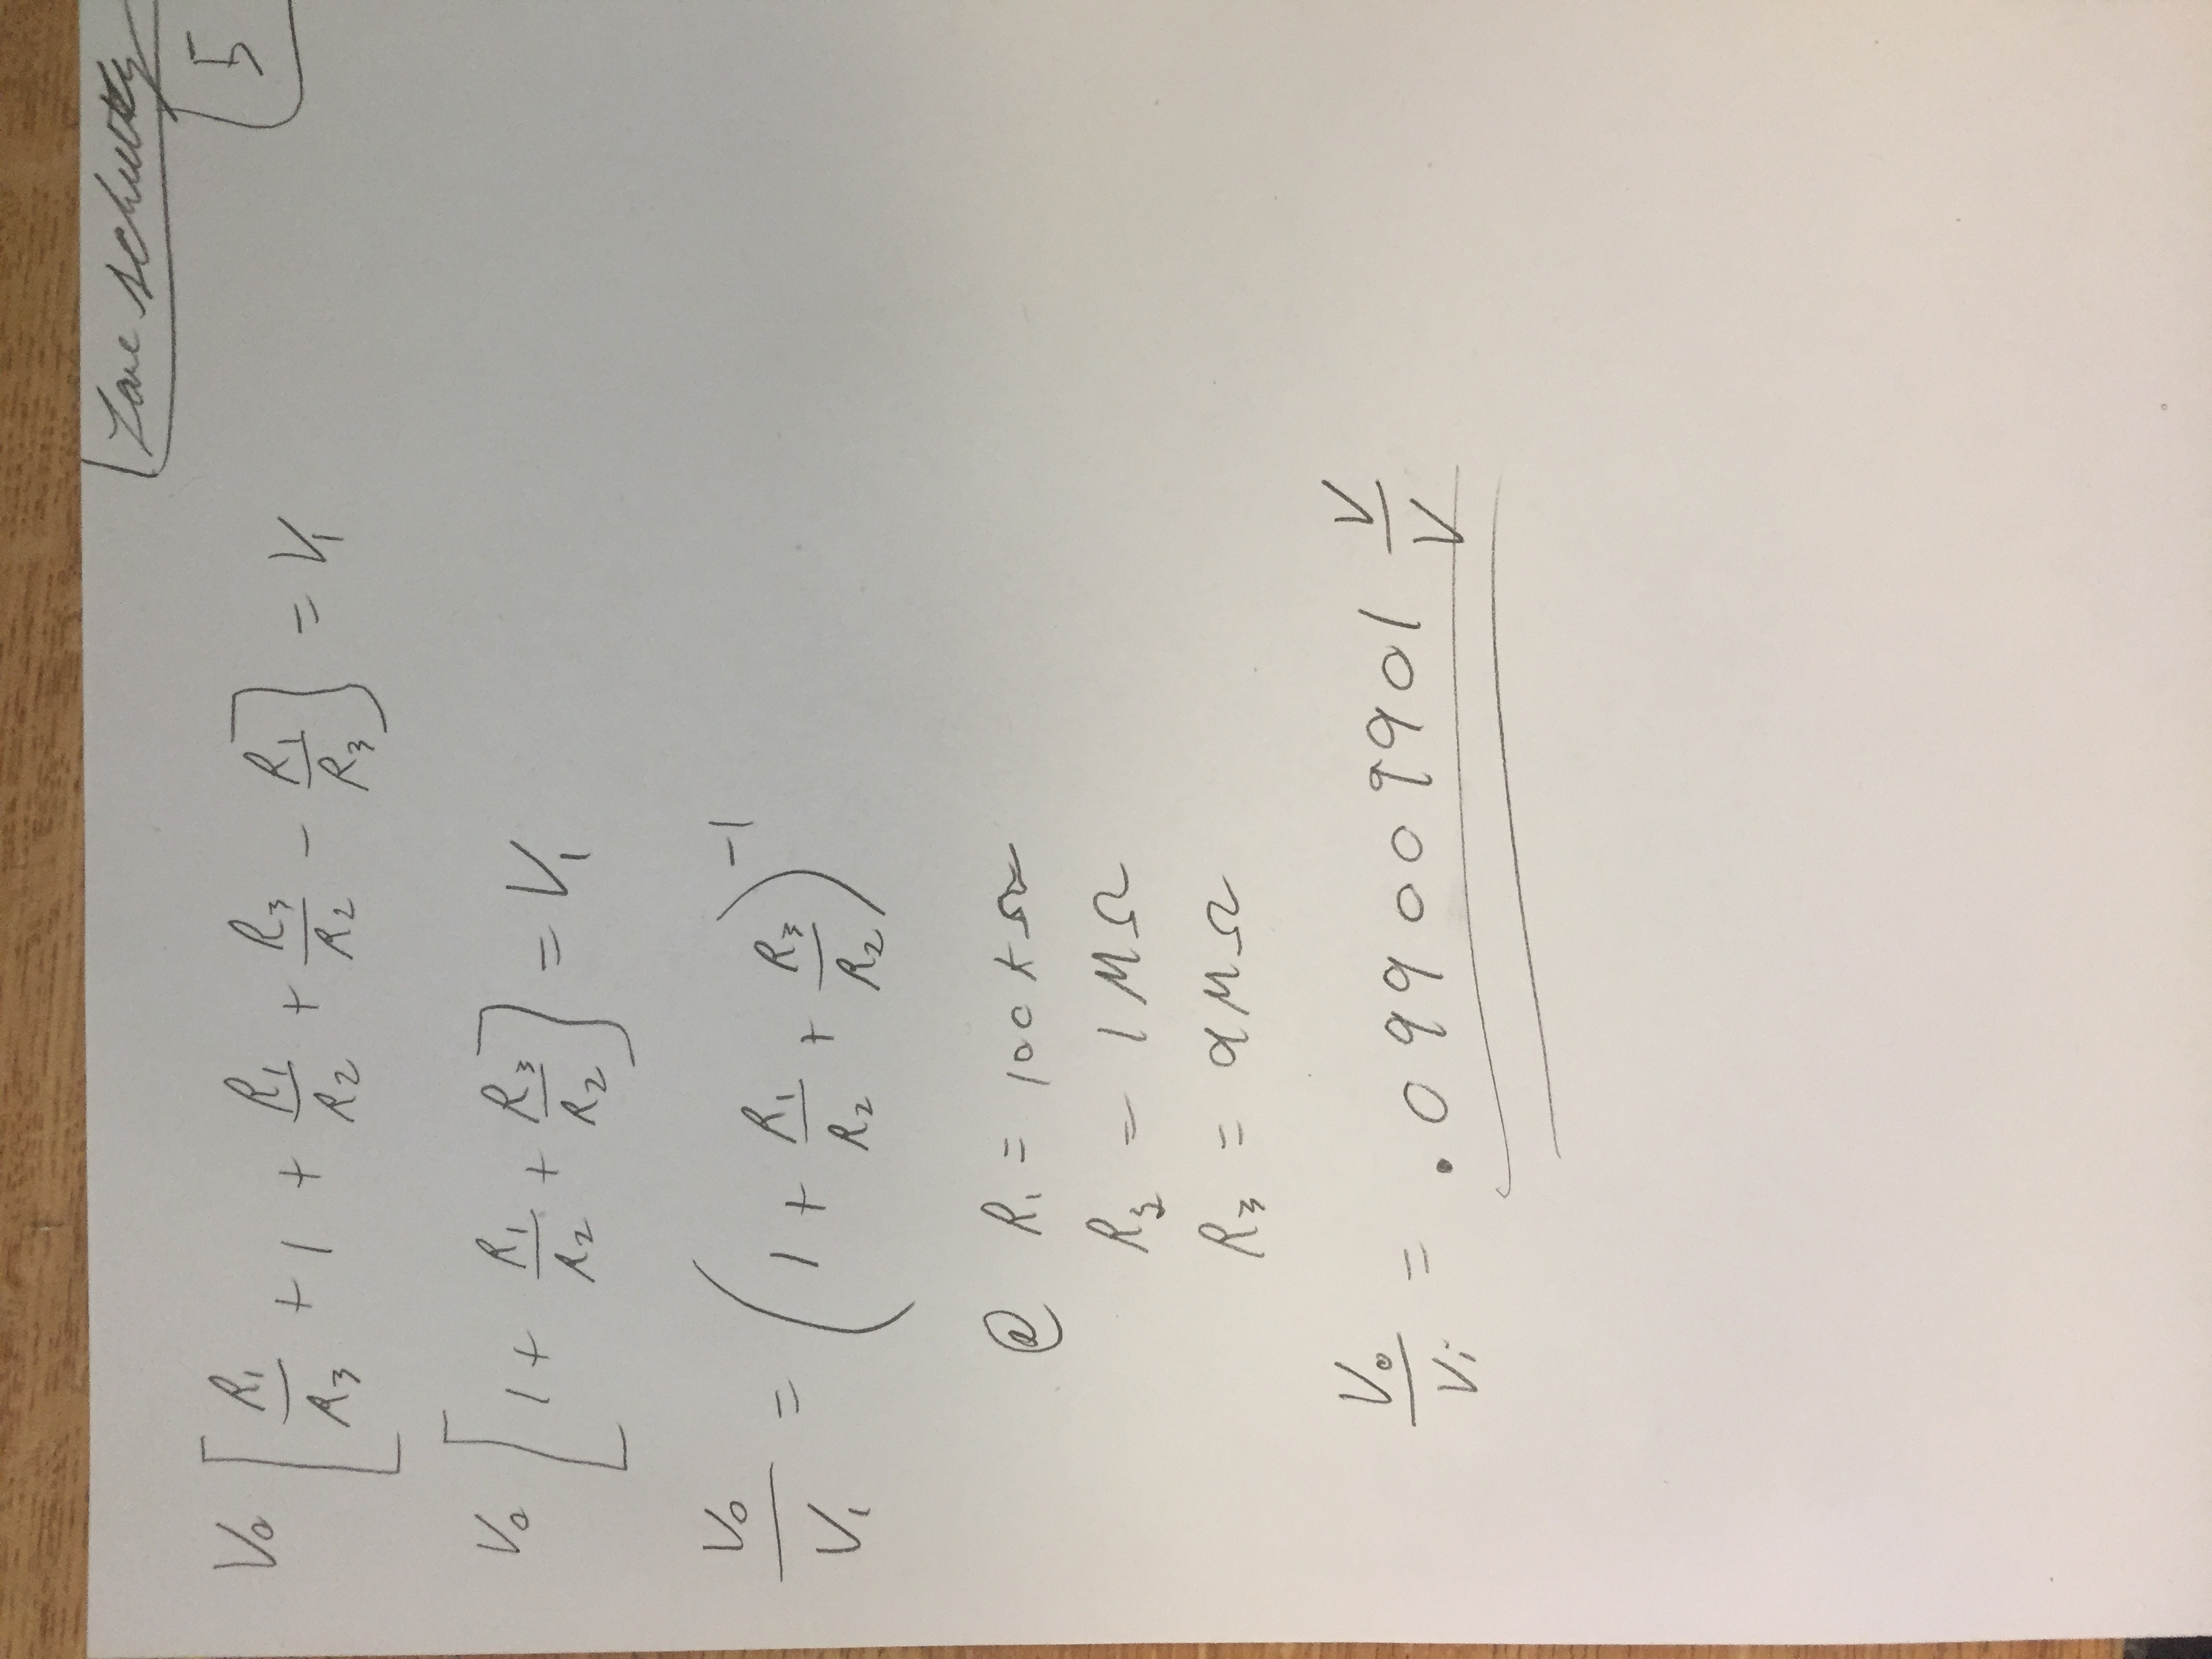 5
V₀ [ R₁/R₃ + 1 + R₁/R₂ + R₃/R₂ - R₁/R₃ ] = V₁
V₀ [ 1 + R₁/R₂ + R₃/R₂ ] = V₁
V₀/V₁ = ( 1 + R₁/R₂ + R₃/R₂ )⁻¹
@ R₁ = 100 kΩ
R₂ = 1 MΩ
R₃ = 9 MΩ
V₀/Vᵢ = .099009901 V/V